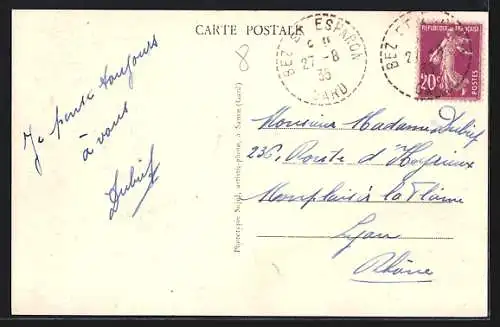 CARTE POSTALE
8
BEZ ET ESPARON
27-8
35
GARD
BEZ ET
20c
POSTES
Je pense toujours
à vous
Dubief
Phototypie
artiste-photo, à
(Gard)
Monsieur Madame Dubief
236, Route d'Heyrieux
Monplaisir la Plaine
Lyon
Rhône